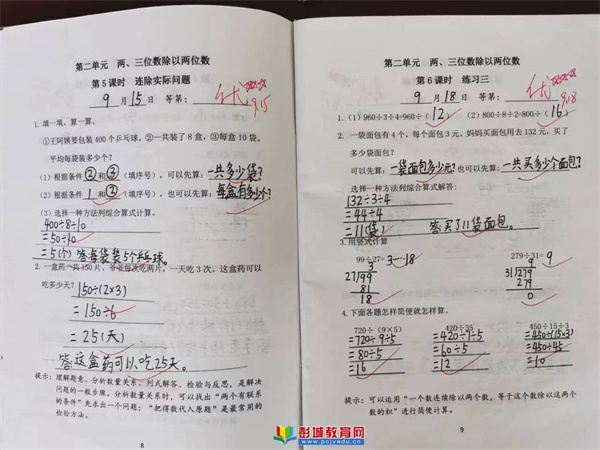 第二单元 两、三位数除以两位数
第5课时 连除实际问题
9月15日 等第:优☆☆☆ 9.15
1. 填一填,算一算。
①王阿姨要包装400个乒乓球,②一共装了8盒,③每盒10袋。
平均每袋装多少个?
(1)根据条件②和③(填序号),可以先算:一共多少袋?
(2)根据条件1和②(填序号),也可以先算:每盒有多少个?
(3)选择一种方法列综合算式计算。
400÷8÷10
=50÷10
=5(个) 答:每袋装5个乒乓球。
2. 一盒药一共150片,爷爷每次吃两片,一天吃3次,这盒药可以
吃多少天?
150÷(2×3)
=150÷6
=25(天)
答:这盒药可以吃25天。
提示:理解题意、分析数量关系、列式解答、检验与反思,是解决
问题的一般步骤。分析数量关系时,可以找出“两个有联系
的条件”先求出一个问题;“把得数代入原题”是最常用的
检验方法。
8
第二单元 两、三位数除以两位数
第6课时 练习三
9月18日 等第:优☆☆☆ 9.18
1. (1)960÷3÷4=960÷(12) (2)800÷8÷2=800÷(16)
2. 一袋面包有4个,每个面包3元。妈妈买面包用去132元,买了
多少袋面包?
可以先算:一袋面包多少元?也可以先算:一共买多少个面包?
选择一种方法列综合算式解答:
132÷3÷4
=44÷4
=11(袋) 答:买了11袋面包。
3. 用竖式计算
99÷27=3…18 279÷31=9
3 9
27)99 31)279
81 279
18 0
4. 下面各题怎样简便就怎样算。
720÷(9×5) 420÷35 450÷15÷3
=720÷9÷5 =420÷7÷5 =450÷(15×3)
=80÷5 =60÷5 =450÷45
=16 =12 =10
提示:可以运用“一个数连续除以两个数,等于这个数除以这两个
数的积”进行简便计算。
9
彭城教育网
www.pcjyedu.cn